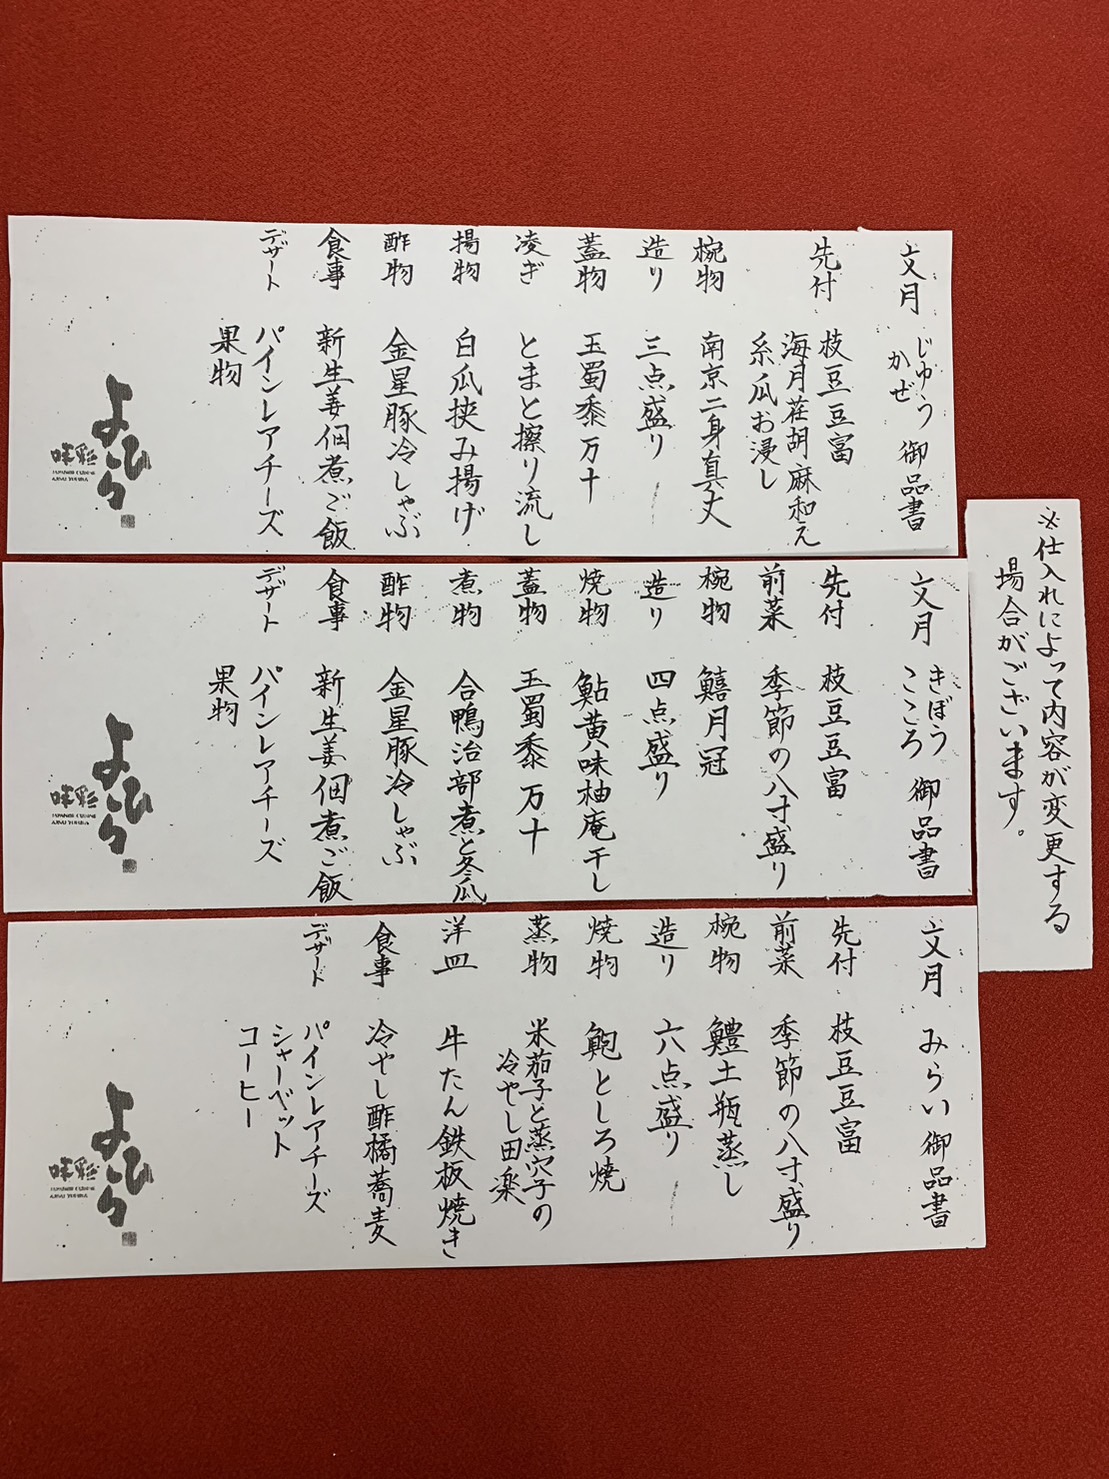 文月 じゅう
かぜ 御品書
先付 枝豆豆富
海月荏胡麻和え
糸瓜お浸し
椀物 南京二身真丈
造り 三点盛り
蓋物 玉蜀黍万十
凌ぎ とまと擦り流し
揚物 白瓜挟み揚げ
酢物 金星豚冷しゃぶ
食事 新生姜佃煮ご飯
デザート パインレアチーズ
果物
よひら
文月 きぼう
こころ 御品書
先付 枝豆豆富
前菜 季節の八寸盛り
椀物 鱚月冠
造り 四点盛り
焼物 鮎黄八味柚庵干し
蓋物 玉蜀黍万十
煮物 合鴨治部煮と冬瓜
酢物 金星豚冷しゃぶ
食事 新生姜佃煮ご飯
デザート パインレアチーズ
果物
よひら
文月 みらい 御品書
先付 枝豆豆富
前菜 季節の八寸盛り
椀物 鱧土瓶蒸し
造り 六点盛り
焼物 鮑としろ焼
蒸物 米茄子と蒸穴子の
冷やし田楽
洋皿 牛たん鉄板焼き
食事 冷やし酢橘蕎麦
デザート パインレアチーズ
シャーベット
コーヒー
よひら
※仕入れによって内容が変更する
場合がございます。